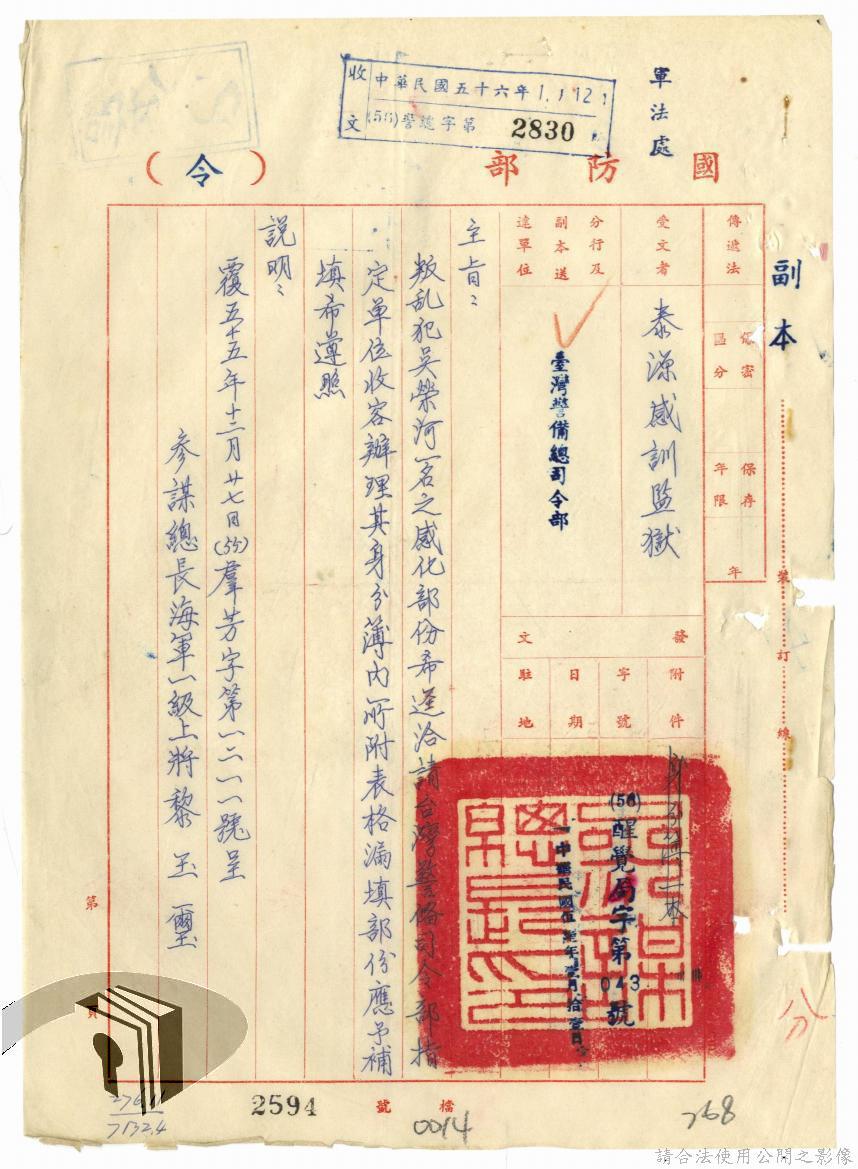 軍法處
收文
中華民國五十六年1.1.12
(56)警總字第 2830
國防部
(令)
副本
裝訂線
傳遞法
保密區分
保存年限
年
受文者
泰源感訓監獄
分行及副本送達單位
臺灣警備總司令部
發文
附件
字號
日期
駐地
(56)醒覺局字第043號
主旨：
叛乱犯吳榮河一名之感化部份希逕洽請台灣警备司令部指
定单位收容辦理其身分薄內所附表格漏填部份應予補
填希遵照
説明：
覆五十五年十二月廿七日(55)羣芳字第一二一一號呈
參謀總長海軍一級上將黎玉璽
第
頁
檔號
2594
0014
768
請合法使用公開之影像